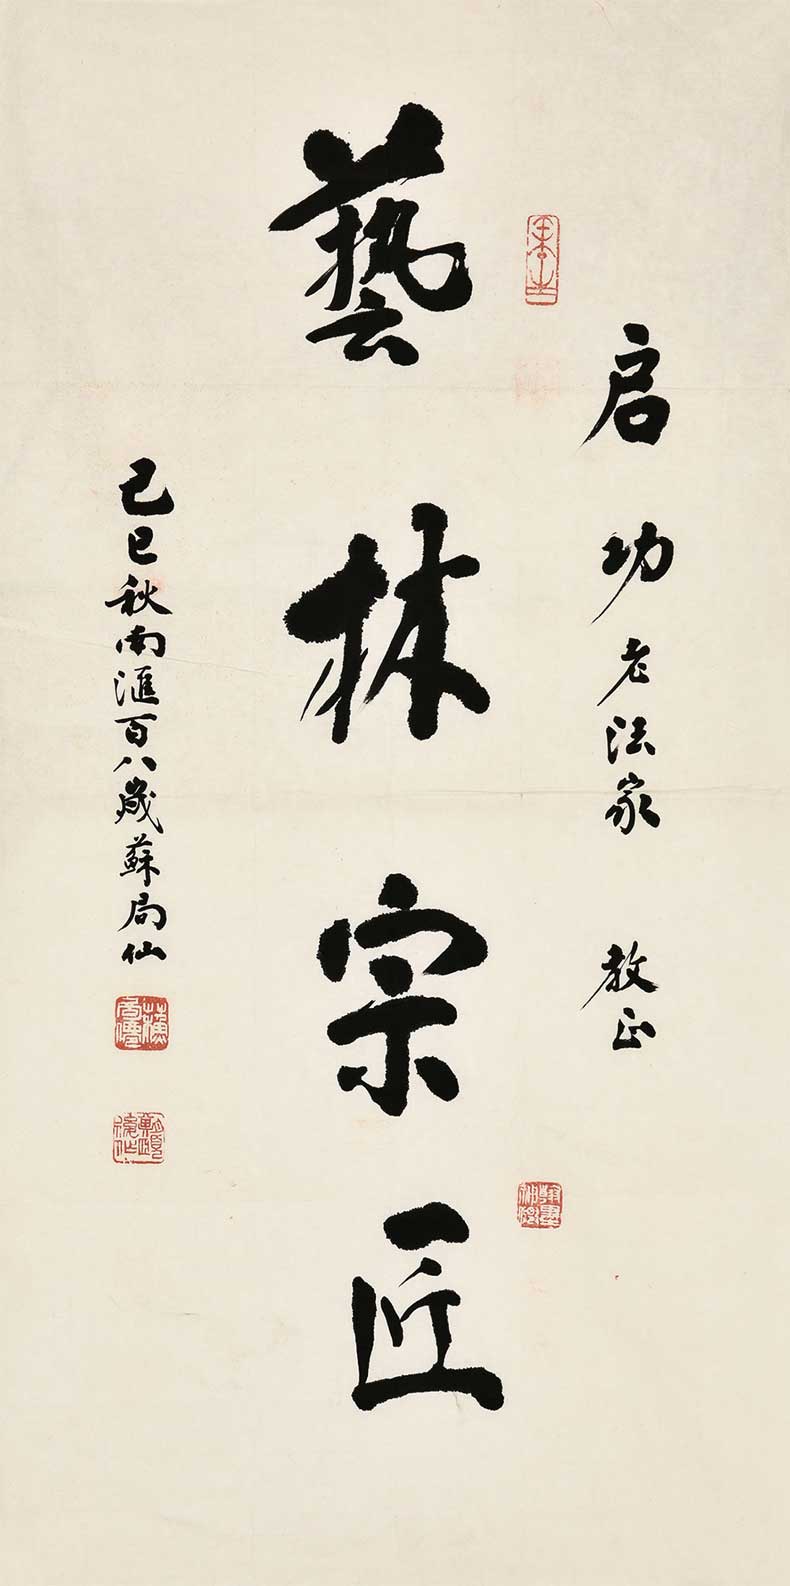 启功老法家 教正
藝林宗匠
己巳秋南滙百八歲蘇局仙
蘇局僊